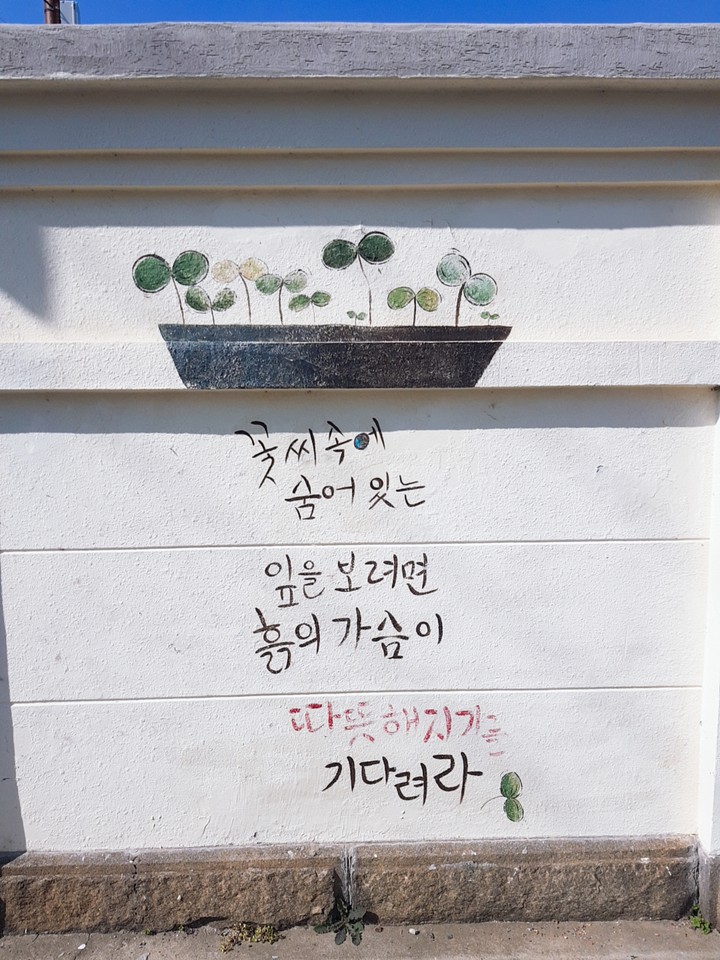 꽃씨 속에
숨어 있는
잎을 보려면
흙의 가슴이
따뜻해지기를
기다려라